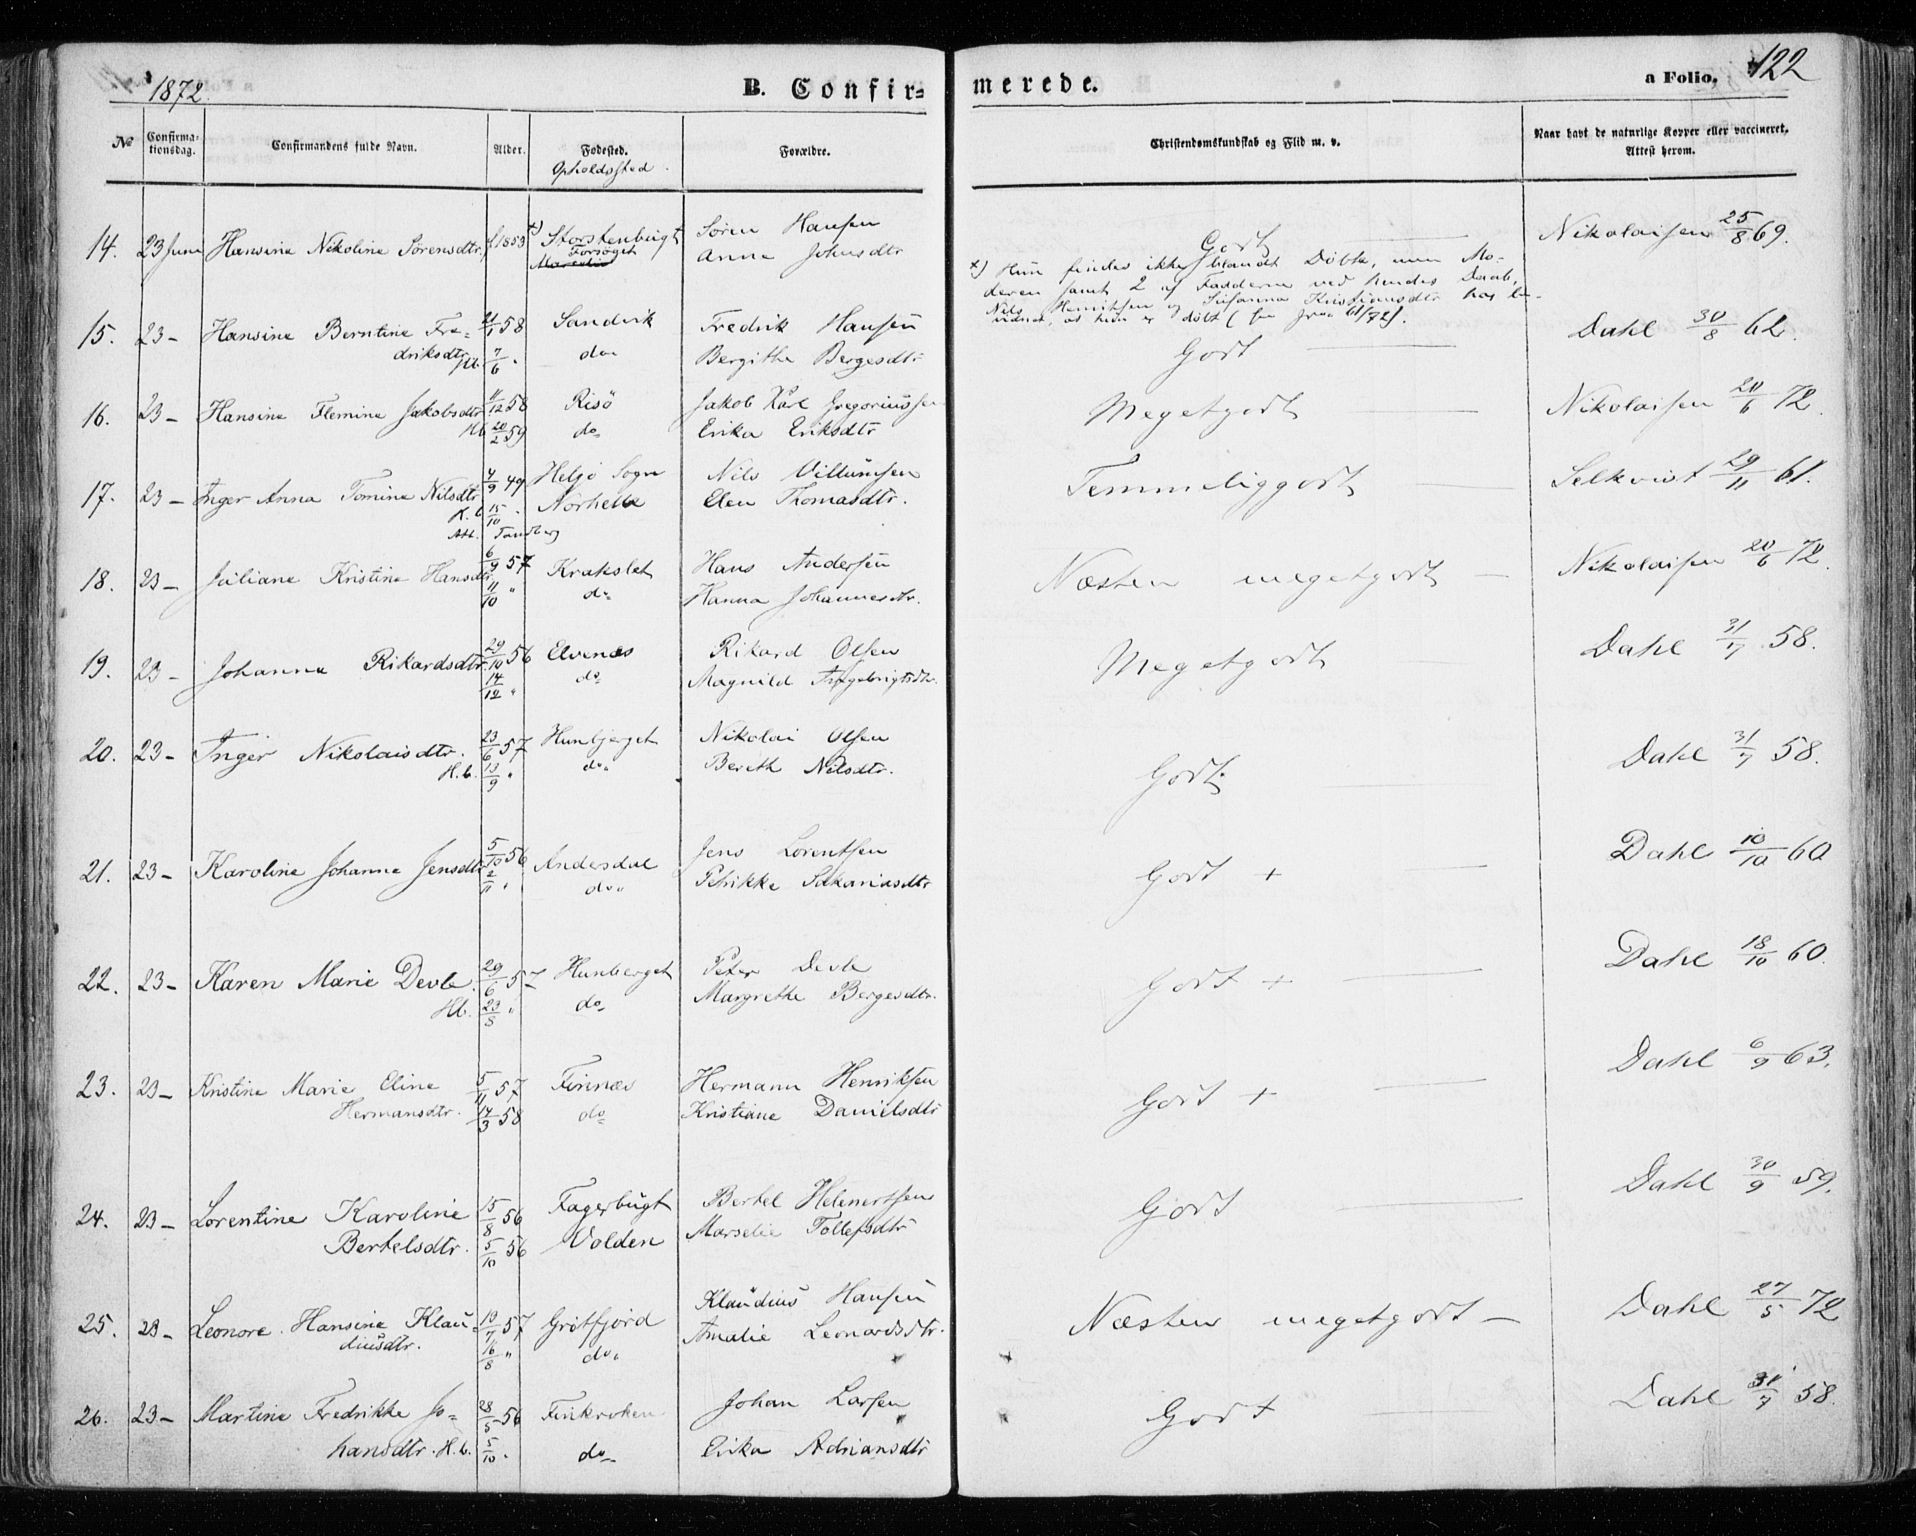 1872. B. Confirmerede. a Folio, 122
№ Confirmationsdag. Confirmandens fulde Navn. Alder. Fødested. Forældre. Christendomskundskab og Flid m. v. Naar havt de naturlige Kopper eller vaccineret. Attest herom.
Opholdssted.
14. 23 Juni Hansine Nikoline Sørensdtr. f 1853 x) Storstenbugt Søren Hansen Godt Nikolaisen 25/8 69.
Forsøget Anne Johnsdtr
x) Hun findes ikke blandt Døbte, men Mo-
deren samt 2 af Fadderne ved hendes Daab,
Nils Henriksen og Susanna Kristiansdtr har be-
vidnet, at hun er døbt
15. 23 - Hansine Berntine Fre- 21/1 58 Sandvik Fredrik Hansen Godt Dahl 30/8 62.
driksdtr Hb. 7/6 " do " Bergithe Bergesdtr
16. 23 - Hansine Flemine Jakobsdtr 11/12 58 Risö Jakob Karl Gregoriussen Megetgodt Nikolaisen 20/6 72.
Hb 20/2 59 do Erika Eriksdtr
17. 23 - Inger Anna Tomine Nilsdtr 4/9 49 Helgö Sogn Nils Villumsen Temmeliggodt Selkvist 29/11 61.
H. b 15/10 " Norhella Elen Thomasdtr.
Att. Tandberg
18. 23 - Juliane Kristine Hansdtr 6/9 57 Krakslet Hans Andersen Næsten megetgodt Nikolaisen 20/6 72.
11/10 " do " Hanna Johannesdtr.
19. 23 - Johanna Rikardsdtr. 29/10 56 Elvenæs Rikard Olsen Megetgodt Dahl 31/7 58.
14/12 " do Magnild Ingebrigtsdtr.
20. 23 - Inger Nikolaisdtr. 23/6 57 Hunbjerget Nikolai Olsen Godt Dahl 31/7 58.
H. b. 13/9 " do " Bereth Nilsdtr.
21. 23 - Karoline Johanna Jensdtr 5/10 56 Andersdal Jens Lorentsen Godt + Dahl 10/10 60
2/11 " do " Petrikke Sakariasdtr
22. 23 - Karen Marie Devle. 29/6 57 Hunberget Peter Devle Godt + Dahl 18/10 60.
Hb. 23/8 " do Margrethe Bergesdtr.
23. 23 - Kristine Marie Eline 5/11 57 Finnæs Hermann Henriksen Godt + Dahl 6/9 63.
Hermansdtr. 14/3 58 do Kristiane Danielsdtr
24. 23 - Lorentine Karoline 15/8 56 Fagerbugt Bertel Helmertsen Godt Dahl 30/9 59.
Bertelsdtr. 5/10 56 Volden Marselie Tollefsdtr
25. 23 - Leonore Hansine Klau- 19/7 57 Grötfjord Klaudius Hansen Næsten megetgodt Dahl 27/5 72
diusdtr. 16/8 " do " Amalie Leonardsdtr.
26. 23 - Martine Fredrikke Jo- 28/5 56 Finkroken Johan Larsen Godt Dahl 31/7 58.
hansdtr. H. b. 5/10 " do Erika Adriansdtr